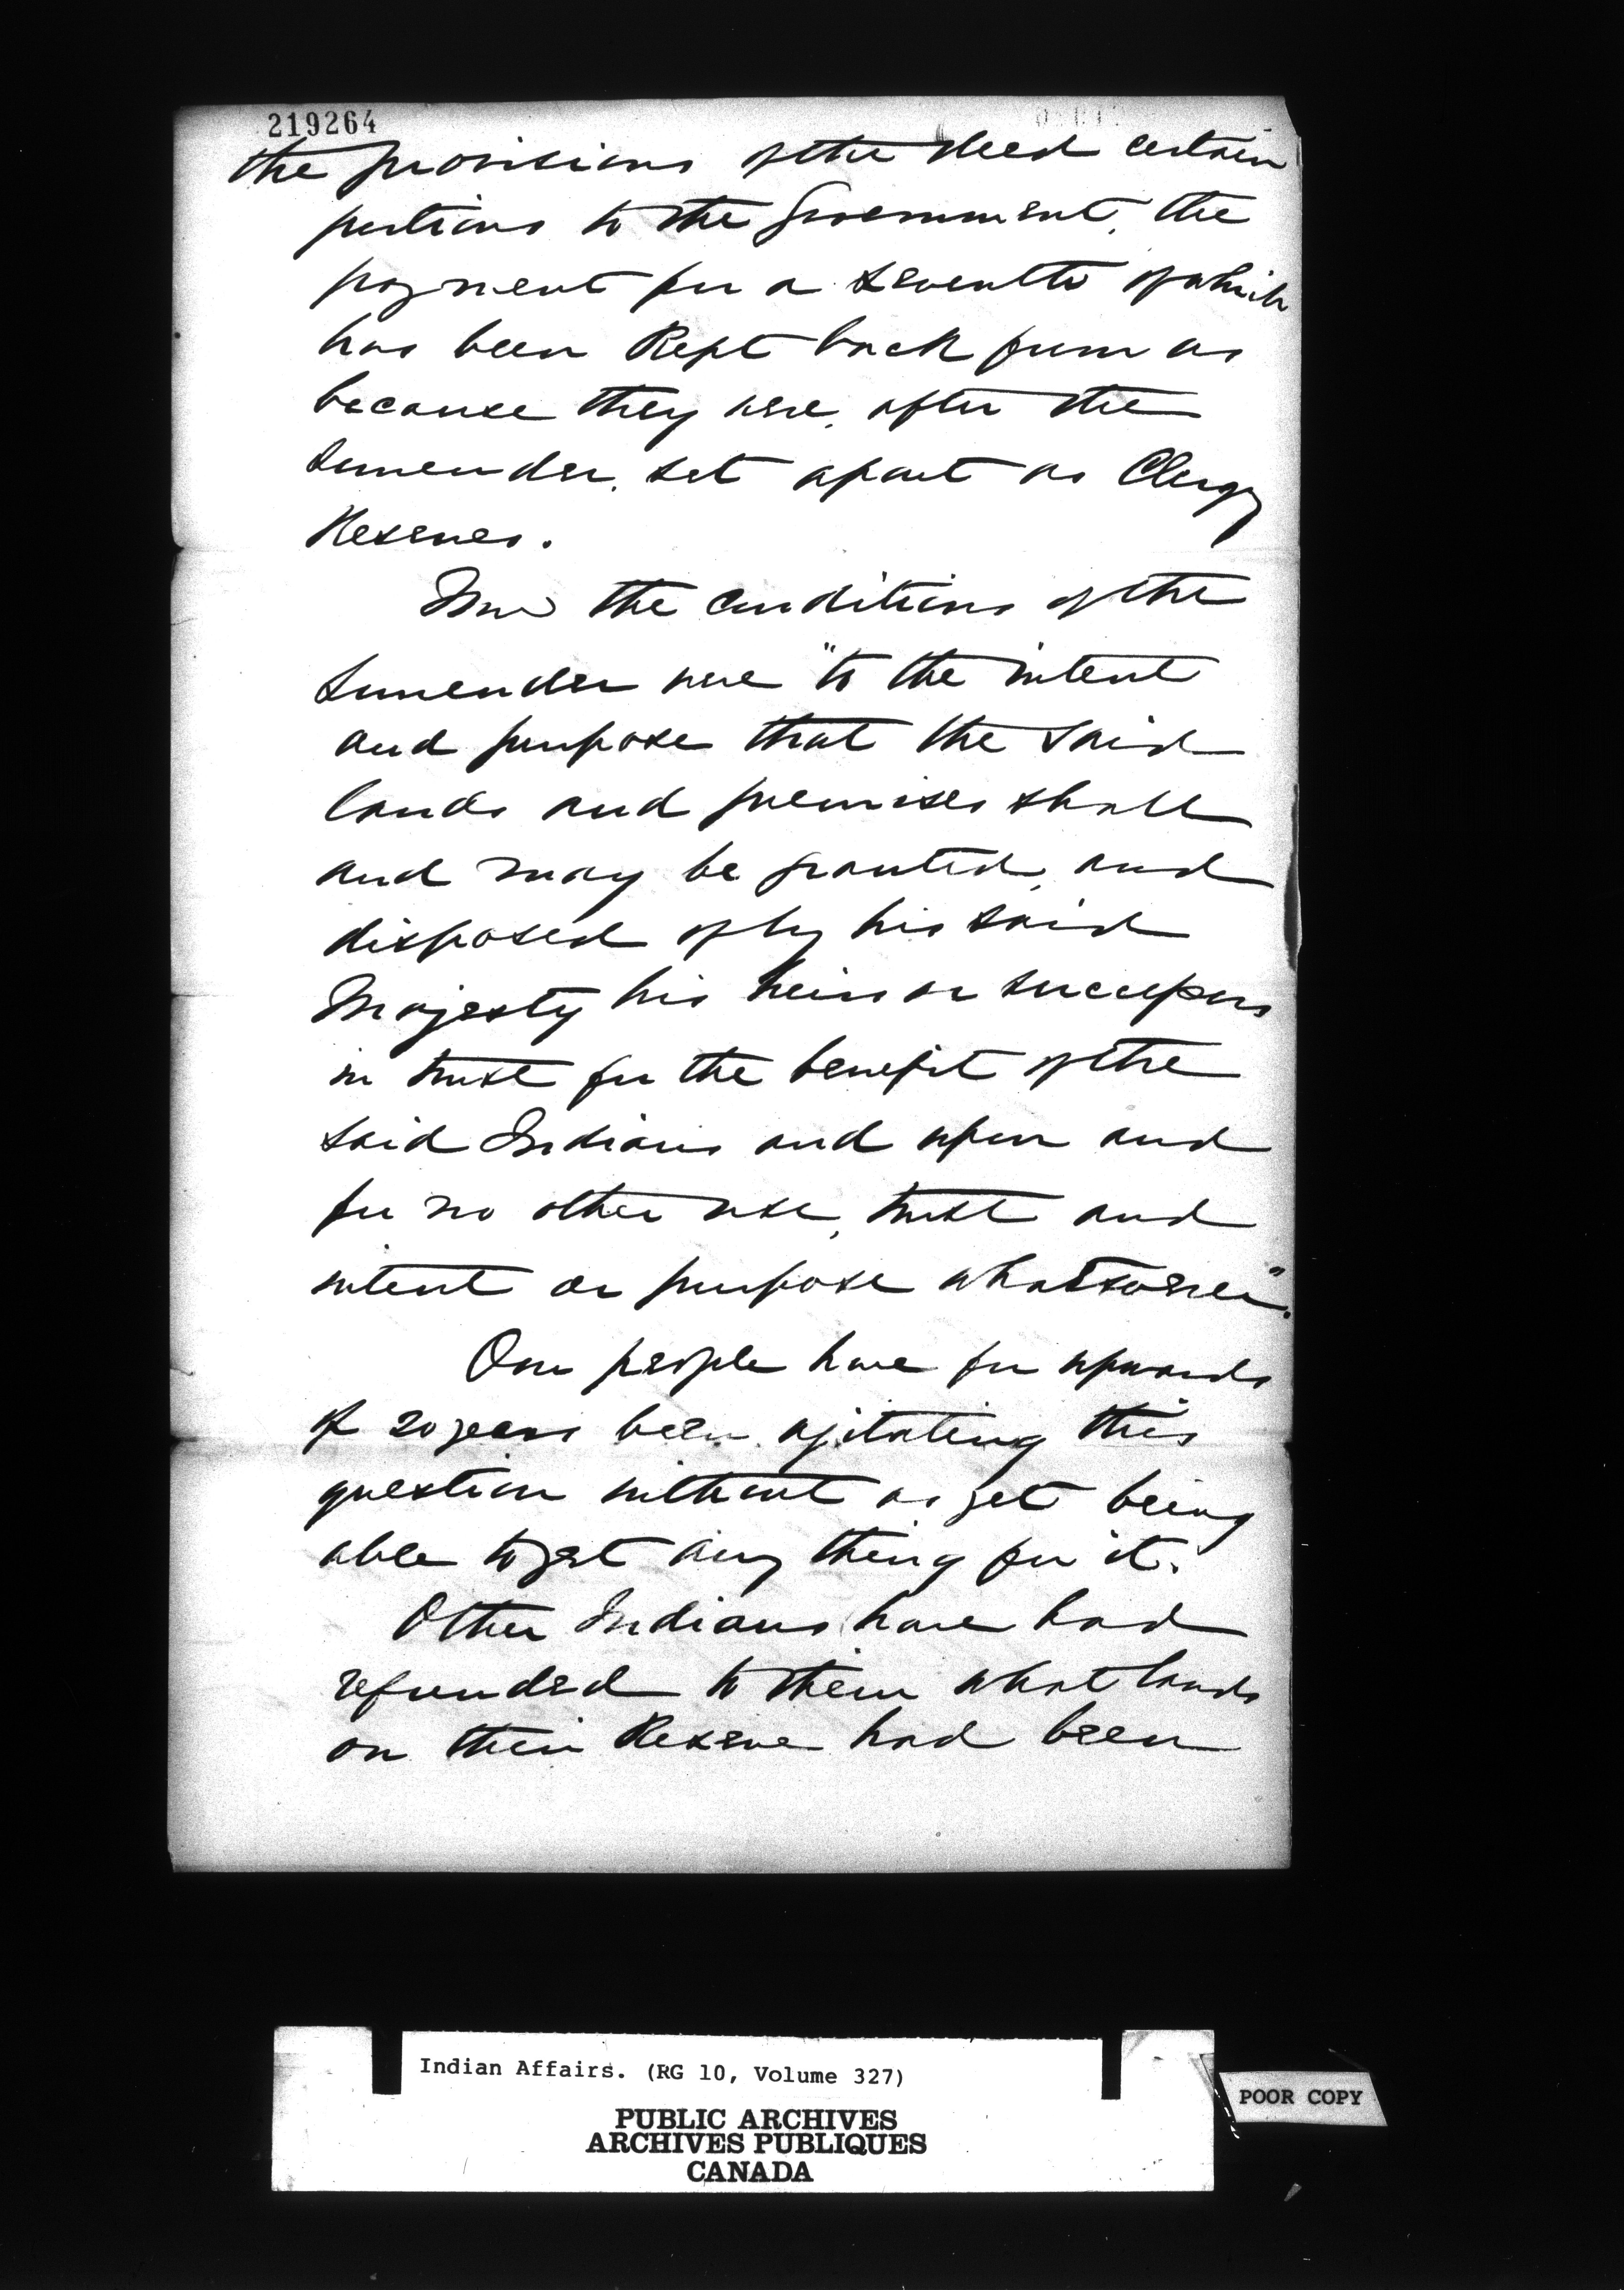 219264
the provisions of the deed certain
portions to the Government, the
payment for a seventh of which
has been kept back from us
because they were, after the
surrender, set apart as Clergy
Reserves.
Now the conditions of the
surrender were "to the intent
and purpose that the said
lands and premises shall
and may be granted, and
disposed of by his said
Majesty his heirs or successors
in trust for the benefit of the
said Indians and upon and
for no other use, trust and
intent or purpose whatsoever".
Our people have for upwards
of 20 years been agitating this
question without as yet being
able to get any thing for it.
Other Indians have had
refunded to them what lands
on their Reserve had been
Indian Affairs. (RG 10, Volume 327)
POOR COPY
PUBLIC ARCHIVES
ARCHIVES PUBLIQUES
CANADA